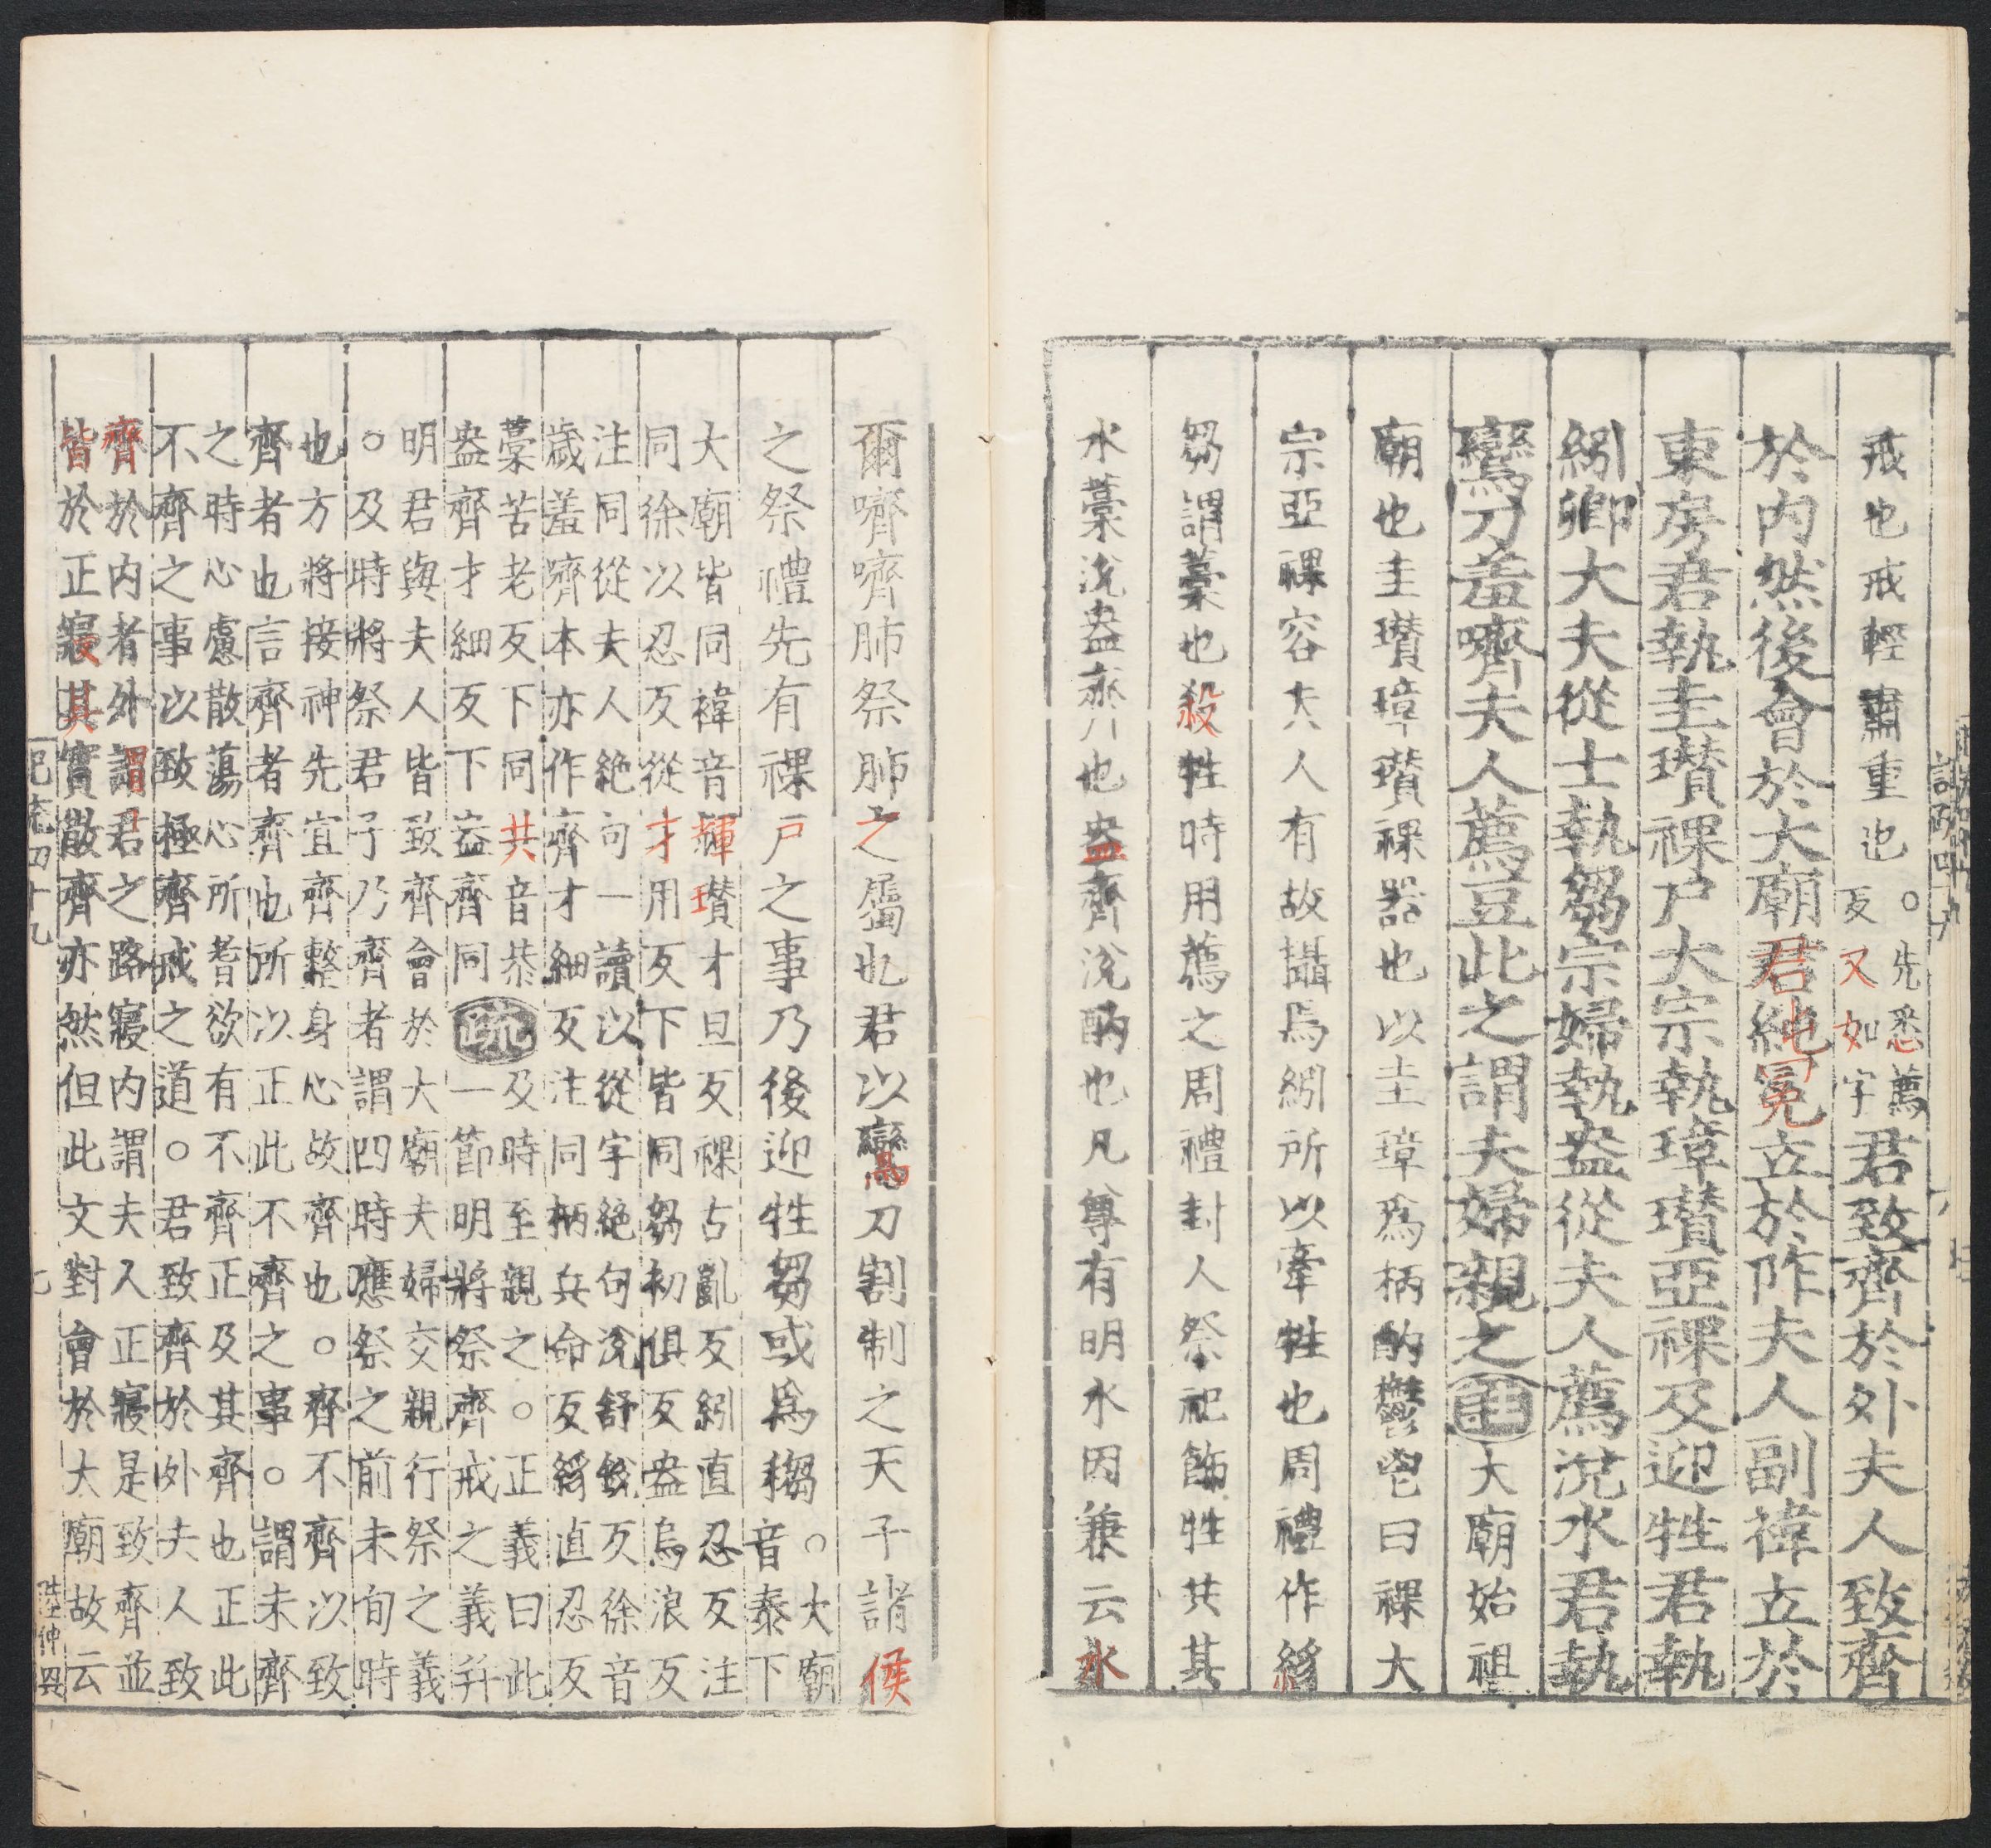 戒也戒輕肅重也○先悉薦
反又如字君致齊於外夫人致齊
於内然後會於大廟君純冕立於阼夫人副褘立於
東房君執圭瓚祼尸大宗執璋瓚亞祼及迎牲君執
紖卿大夫從士執芻宗婦執盎從夫人薦涗水君執
鸞刀羞嚌夫人薦豆此之謂夫婦親之註大廟始祖
廟也圭瓚璋瓚祼器也以圭璋爲柄酌鬱鬯曰祼大
宗亞祼容夫人有故攝焉紖所以牽牲也周禮作絼
芻謂藁也殺牲時用薦之周禮封人祭祀飾牲共其
水藁涗盎齊也盎齊涗酌也凡尊有明水因兼云水
爾嚌嚌肺祭肺之屬也君以鸞刀割制之天子諸侯
之祭禮先有祼尸之事乃後迎牲芻或爲䅳○大廟
音泰下
大廟皆同褘音輝瓚才旦反祼古亂反紖直忍反注
同徐以忍反從才用反下皆同芻初俱反盎烏浪反
注同從夫人絶句一讀以從字絶句涗舒銳反徐音
歳羞嚌本亦作齊才細反注同柄兵命反絼直忍反
藁苦老反下同共音恭
盎齊才細反下盎齊同疏及時至親之○正義曰此
一節明將祭齊戒之義并
明君與夫人皆致齊會於大廟夫婦交親行祭之義
○及時將祭君子乃齊者謂四時應祭之前未旬時
也方將接神先宜齊整身心故齊也○齊不齊以致
齊者也言齊者齊也所以正此不齊之事○謂未齊
之時心慮散蕩心所耆欲有不齊正及其齊也正此
不齊之事以致極齊戒之道○君致齊於外夫人致
齊於内者外謂君之路寢内謂夫人正寢是致齊並
皆於正寢其實散齊亦然但此文對會於大廟故云
記㐬四十九
七
陸仲興